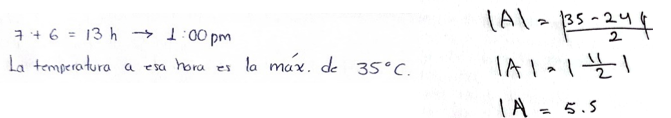 7 + 6 = 13 h → 1:00 pm
La temperatura a esa hora es la máx. de 35°C.
|A| = |35 - 24| / 2
|A| = | 11/2 |
|A = 5.5